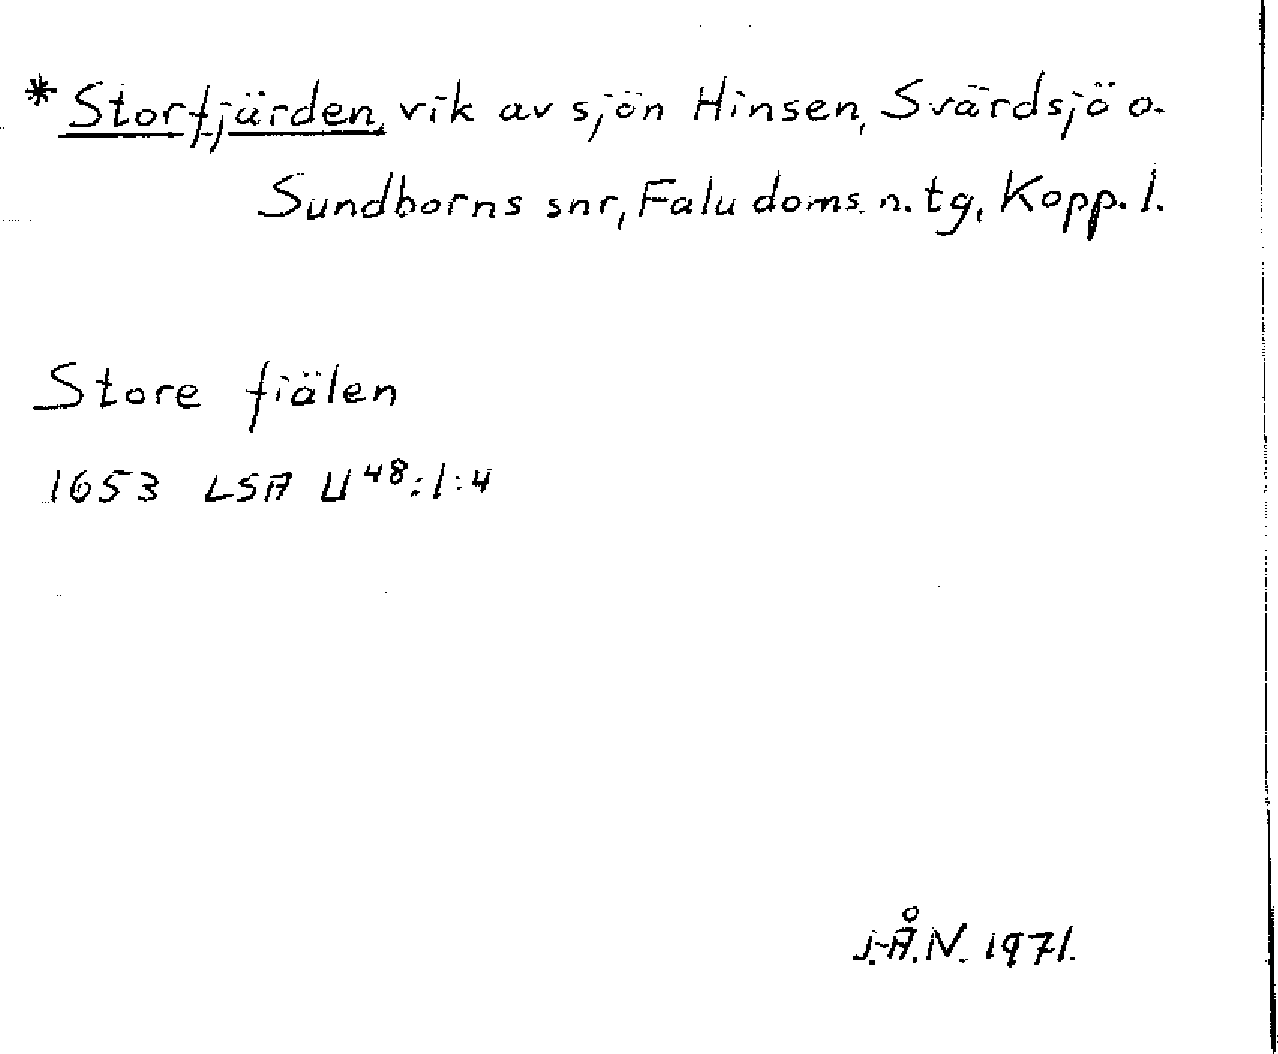 *Storfjärden, vik av sjön Hinsen, Svärdsjö o.
Sundborns snr, Falu doms. n. tg, Kopp. l.
Store fiälen
1653 LSA U48:1:4
J.-Å.N. 1971.